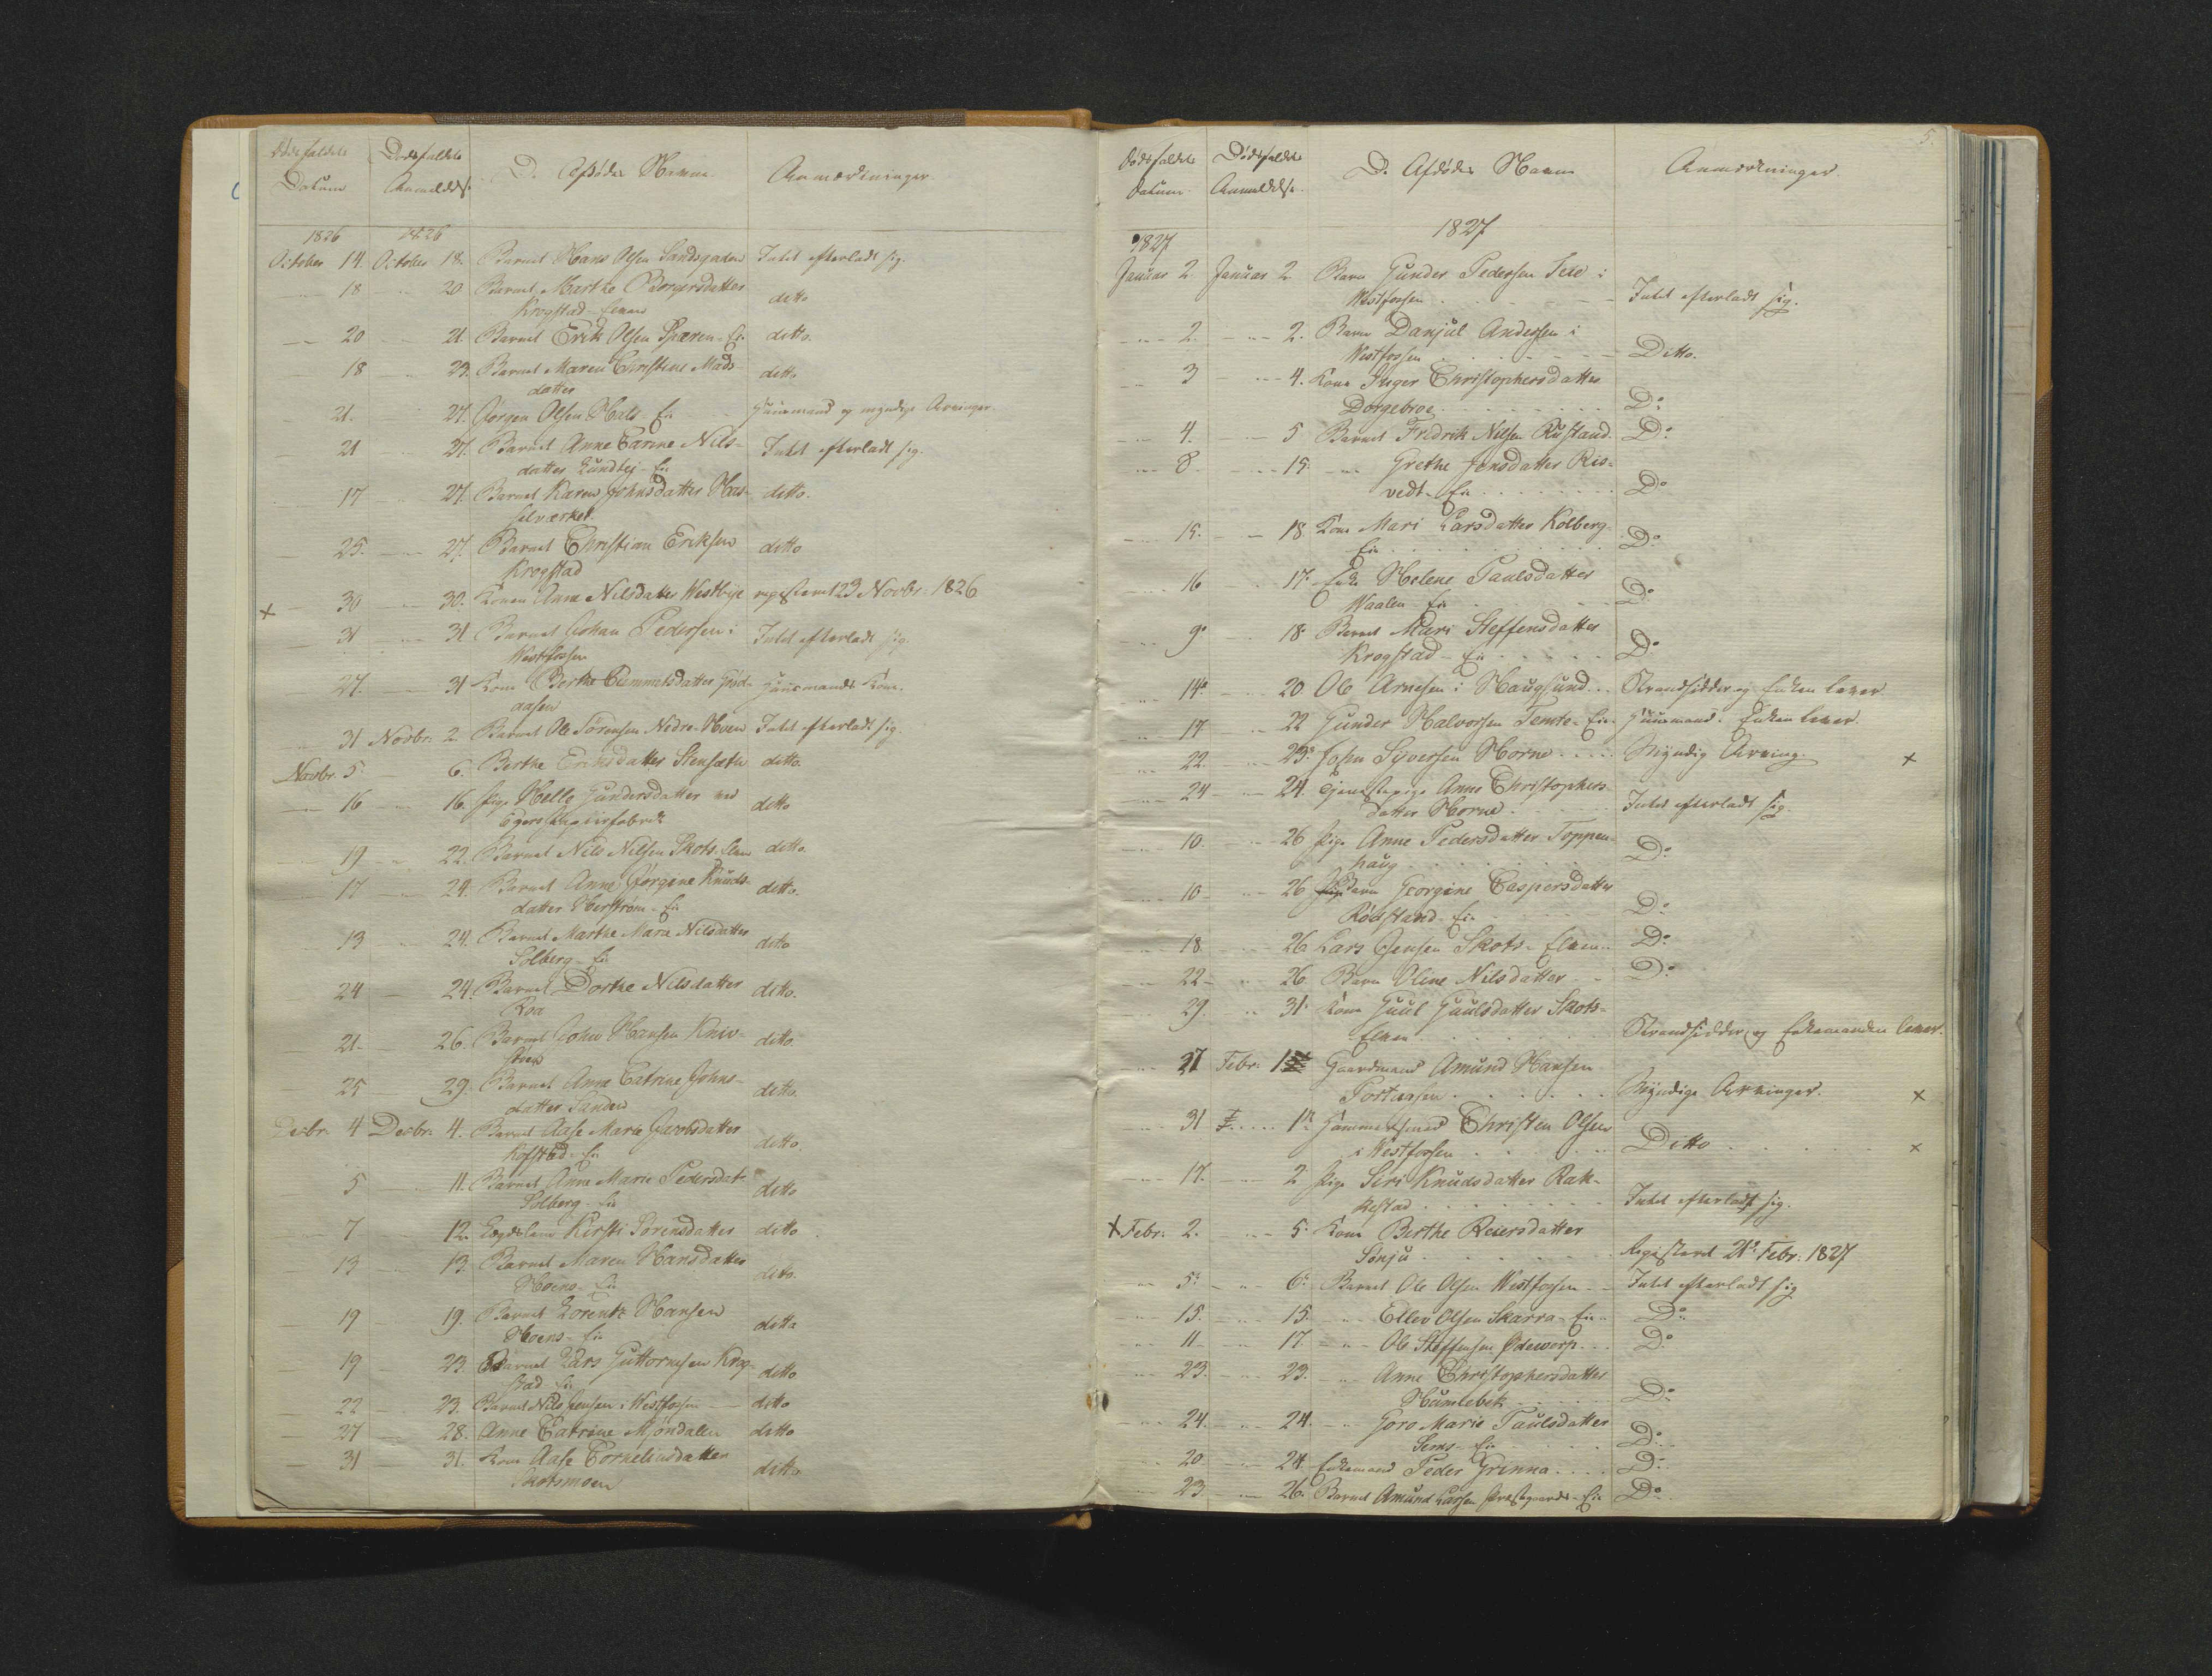 Dødsfaldets Dødsfaldets D. Afdødes Navne. Anmærkninger.
Datum Anmeldelse
1826 1826
October 14. October 18. Barnet Hans Olsen Sandsgaden Intet efterladt sig.
18 20 Barnet Marthe Borgersdatter
Krogstad-Elven ditto
20 21. Barnet Erik Olsen Sparen-Eie ditto.
18 23. Barnet Maren Christine Mads-
datter ditto
21. 27. Jørgen Olsen Hals-Eie Huusmand og myndige Arvinger.
21 27. Barnet Anne Carine Nils-
datter Lundtei-Eie Intet efterladt sig.
17 27. Barnet Karen Johnsdatter Has-
selværket. ditto.
25. 27. Barnet Christian Eriksen
Krogstad ditto
+ 30 30. Konen Anne Nilsdatter Westbye registeret 23 Novbr: 1826
31 31 Barnet Johan Pedersen i
Westfossen Intet efterladt sig.
27. 31 Kone Berthe Gummelsdatter
aasen Huusmands Kone.
31 Novbr: 2. Barnet Ole Sørensen Nedre-Hoen Intet efterladt sig.
Novbr. 5. 6. Berthe Eriksdatter Stensæter ditto.
16 16. Pige Helle Gundersdatter ved
Egers Papiirfabrik ditto
19 22. Barnet Nils Nilsen Skots-Elven ditto.
17 24. Barnet Anne Jørgine Knuds-
datter Herstrøm-Eie ditto.
13 24. Barnet Marthe Maria Nilsdatter
Solberg-Eie ditto
24 24. Barnet Dorthe Nilsdatter
Roa ditto.
21. 26. Barnet John Hansen Kniv-
ditto.
25 29. Barnet Anne Catrine Johns-
datter Sanden ditto.
Decbr. 4 Decbr: 4. Barnet Aase Marie Jacobsdatter
Kofstad-Eie ditto.
5 11. Barnet Anne Marie Pedersdat:
Solberg-Eie ditto
7 12. Lægdslem Kirsti Sørensdatter ditto
13 13. Barnet Maren Hansdatter
Hoens-Eie ditto.
19 19. Barnet Lorentz Hansen
Hoens-Eie ditto
19 23. Barnet Lars Guttormsen Krog-
stad-Eie ditto
22 23. Barnet Nils Jensen i Westfossen ditto
27 28. Anne Catrine Mjøndalen ditto
31 31. Kone Aase Corneliusdatter
Skotsmoen ditto
5.
Dødsfaldets Dødsfaldets D. Afdødes Navne Anmærkninger.
Datum. Anmeldelse.
1827
1827
Januar 2. Januar 2. Barn Gunder Pedersen Teie i
Westfossen Intet efterladt sig.
2. 2. Barn Danjul Andersen i
Westfossen Ditto.
3 4. Kone Inger Christophersdatter
Dorgebroe Do:
4. 5 Barnet Fredrik Nilsen Rustand. Do:
8. 15. Grethe Jensdatter Ris-
vedt-Eie Do
15. 18. Kone Mari Larsdatter Kolberg-
Eie Do
16 17. Enke Helene Paulsdatter
Waalen Eie Do:
9. 18. Barnet Mari Steffensdatter
Krogstad-Eie Do
14. 20 Ole Arnesen i Haugsund Strandsidder og Enken lever.
17 22 Gunder Halvorsen Temte-Eie. Huusmand. Enken lever.
22. 23. John Syversen Horne Myndig Arving. +
24 24. Tjenestepige Anne Christophers-
datter Horne Intet efterladt sig.
10. 26 Pige Anne Pedersdatter Toppen-
haug Do:
10 26 Barn Georgine Caspersdatter
Rødstand-Eie Do:
18 26 Lars Jensen Skots-Elven Do:
22 26 Barn Oline Nilsdatter Do:
29. 31. Kone Guul Guulsdatter Skots-
Elven Strandsidder, og Enkemanden lever.
27 Febr: 1 Gaardmand Amund Hansen
Portaasen Myndige Arvinger. +
31 1 Hammersmed Christen Olsen
i Westfossen Ditto +
17. 2 Pige Siri Knudsdatter Rak-
kestad Intet efterladt sig.
+ Febr: 2. 5. Kone Berthe Reiersdatter
Sønju Registeret 21 Febr: 1827
5. 6. Barnet Ole Olsen Westfossen Intet efterladt sig
15. 15. Ellev Olsen Skarra-Eie Do:
11 17 Ole Steffensen Ødewerp Do.
23. 23. Anne Christophersdatter
Humlebek Do:
24. 24. Goro Marie Paulsdatter
Sems-Eie Do:
20 24. Enkemand Peder Grinna Do:
23 26. Barnet Amund Larsen Præstegaards-Eie Do.